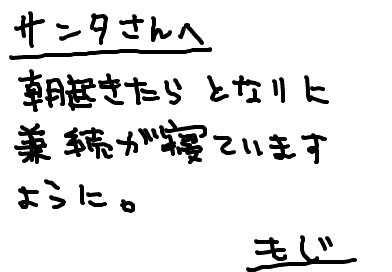 サンタさんへ
朝起きたら となりに
兼続が寝ています
ように。
もじ